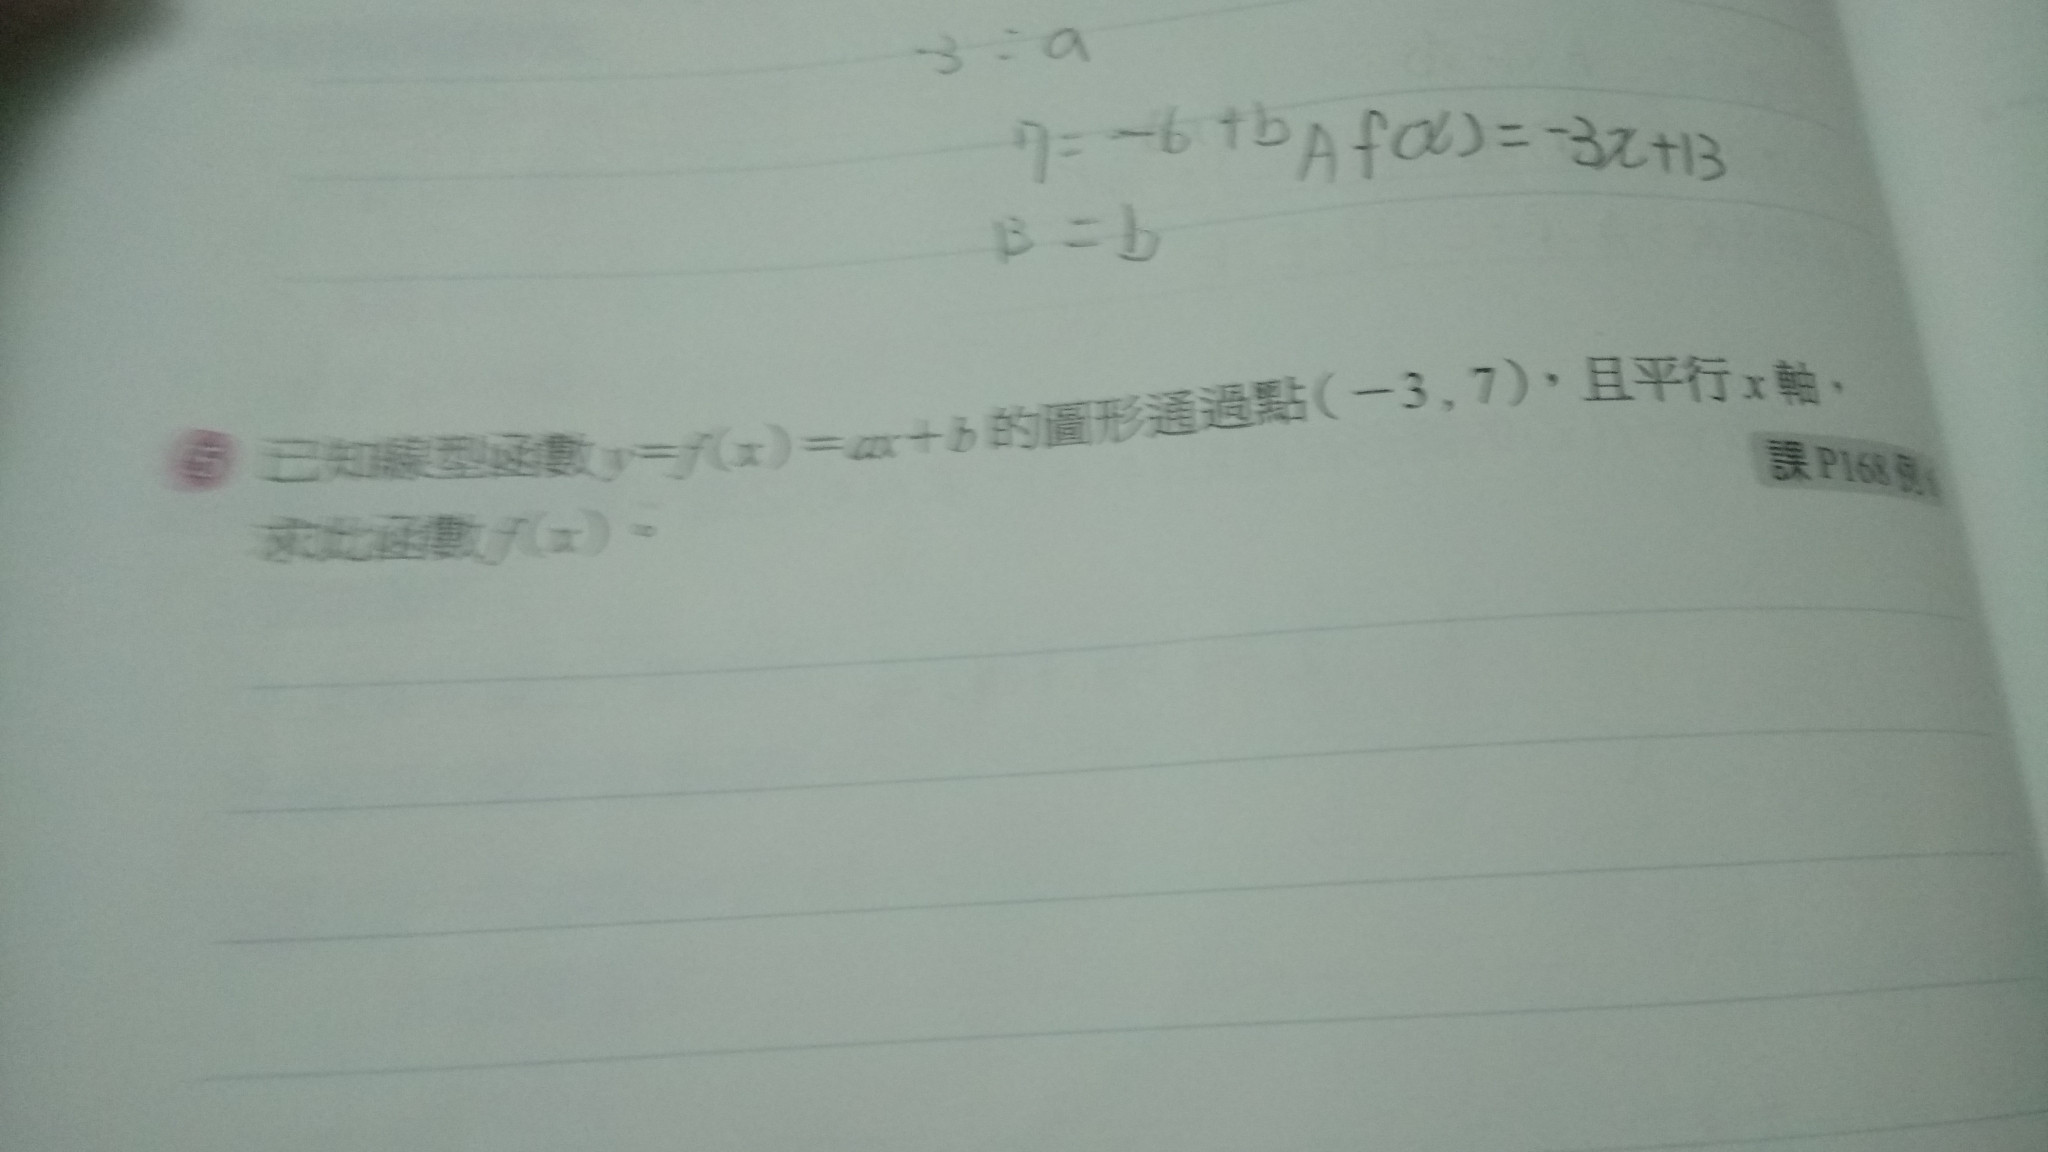 -3 = a
7 = -6 + b A f(x) = -3x+13
13 = b
已知線型函數 y=f(x)=ax+b 的圖形通過點(-3, 7)，且平行 x 軸，
課P168例
求此函數 f(x)。